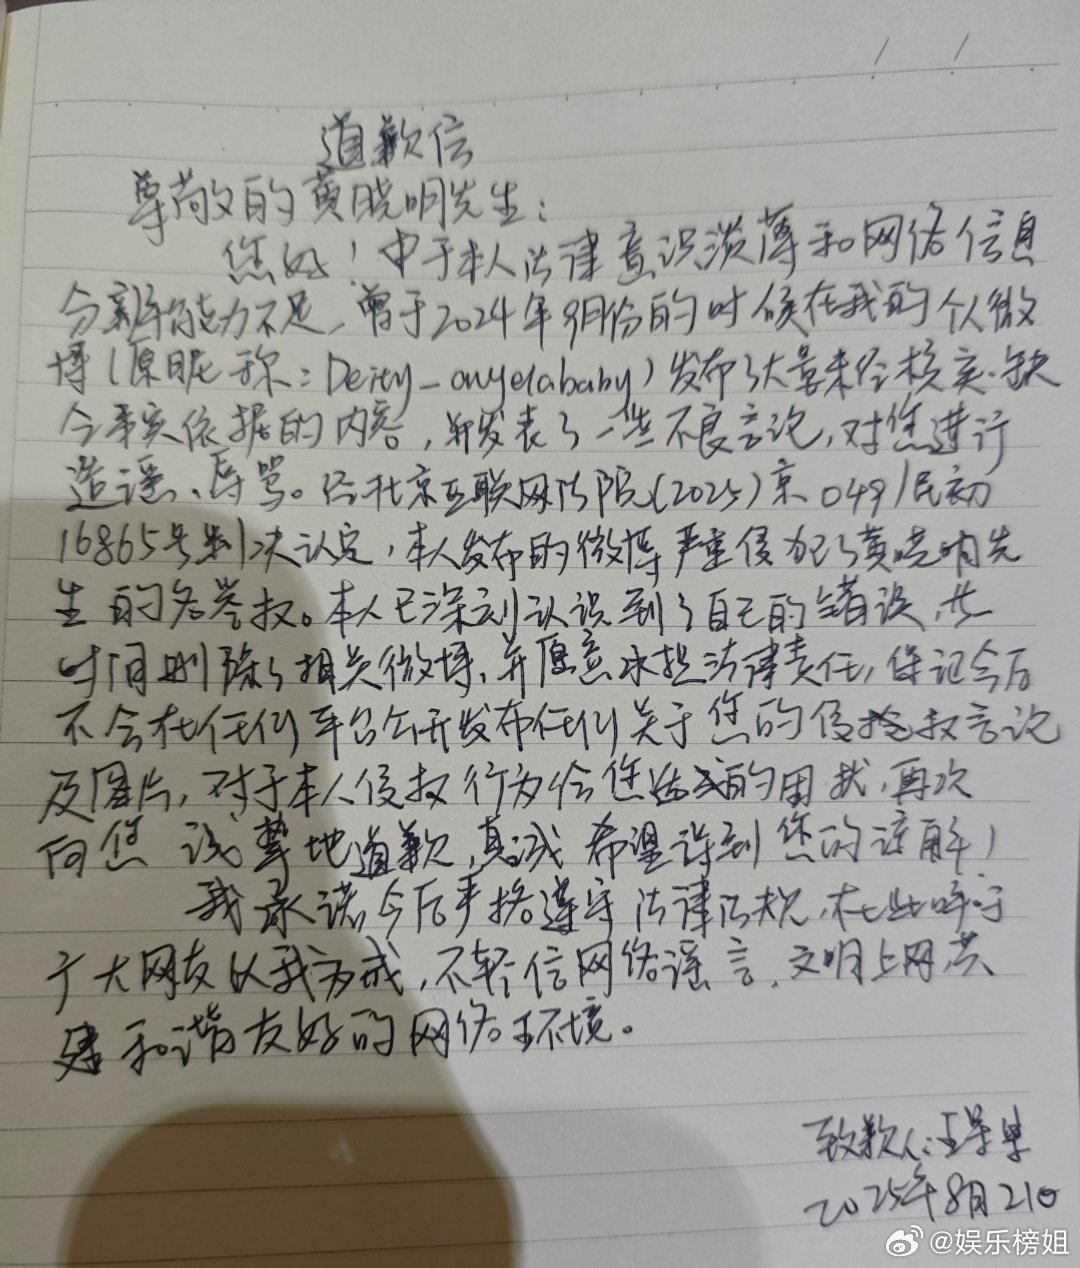 道歉信
尊敬的黄晓明先生：
您好！由于本人法律意识淡薄和网络信息
分辨能力不足，曾于2024年9月份的时候在我的个人微
博（原昵称：Deity_angelababy）发布了大量未经核实、缺
乏事实依据的内容，并发表了一些不良言论，对您进行
造谣、辱骂。经北京互联网法院（2025）京0491民初
16865号判决认定，本人发布的微博严重侵犯了黄晓明先
生的名誉权。本人已深刻认识到了自己的错误，
时间删除了相关微博，并愿意承担法律责任，保证今后
不会在任何平台公开发布任何关于您的侵权言论
及图片，对于本人侵权行为给您造成的困扰，再次
向您诚挚地道歉，真诚希望得到您的谅解！
我承诺今后严格遵守法律法规，在此呼吁
广大网友以我为戒，不轻信网络谣言，文明上网，共
建和谐友好的网络环境。
致歉人：王
2025年8月21日
@娱乐榜姐